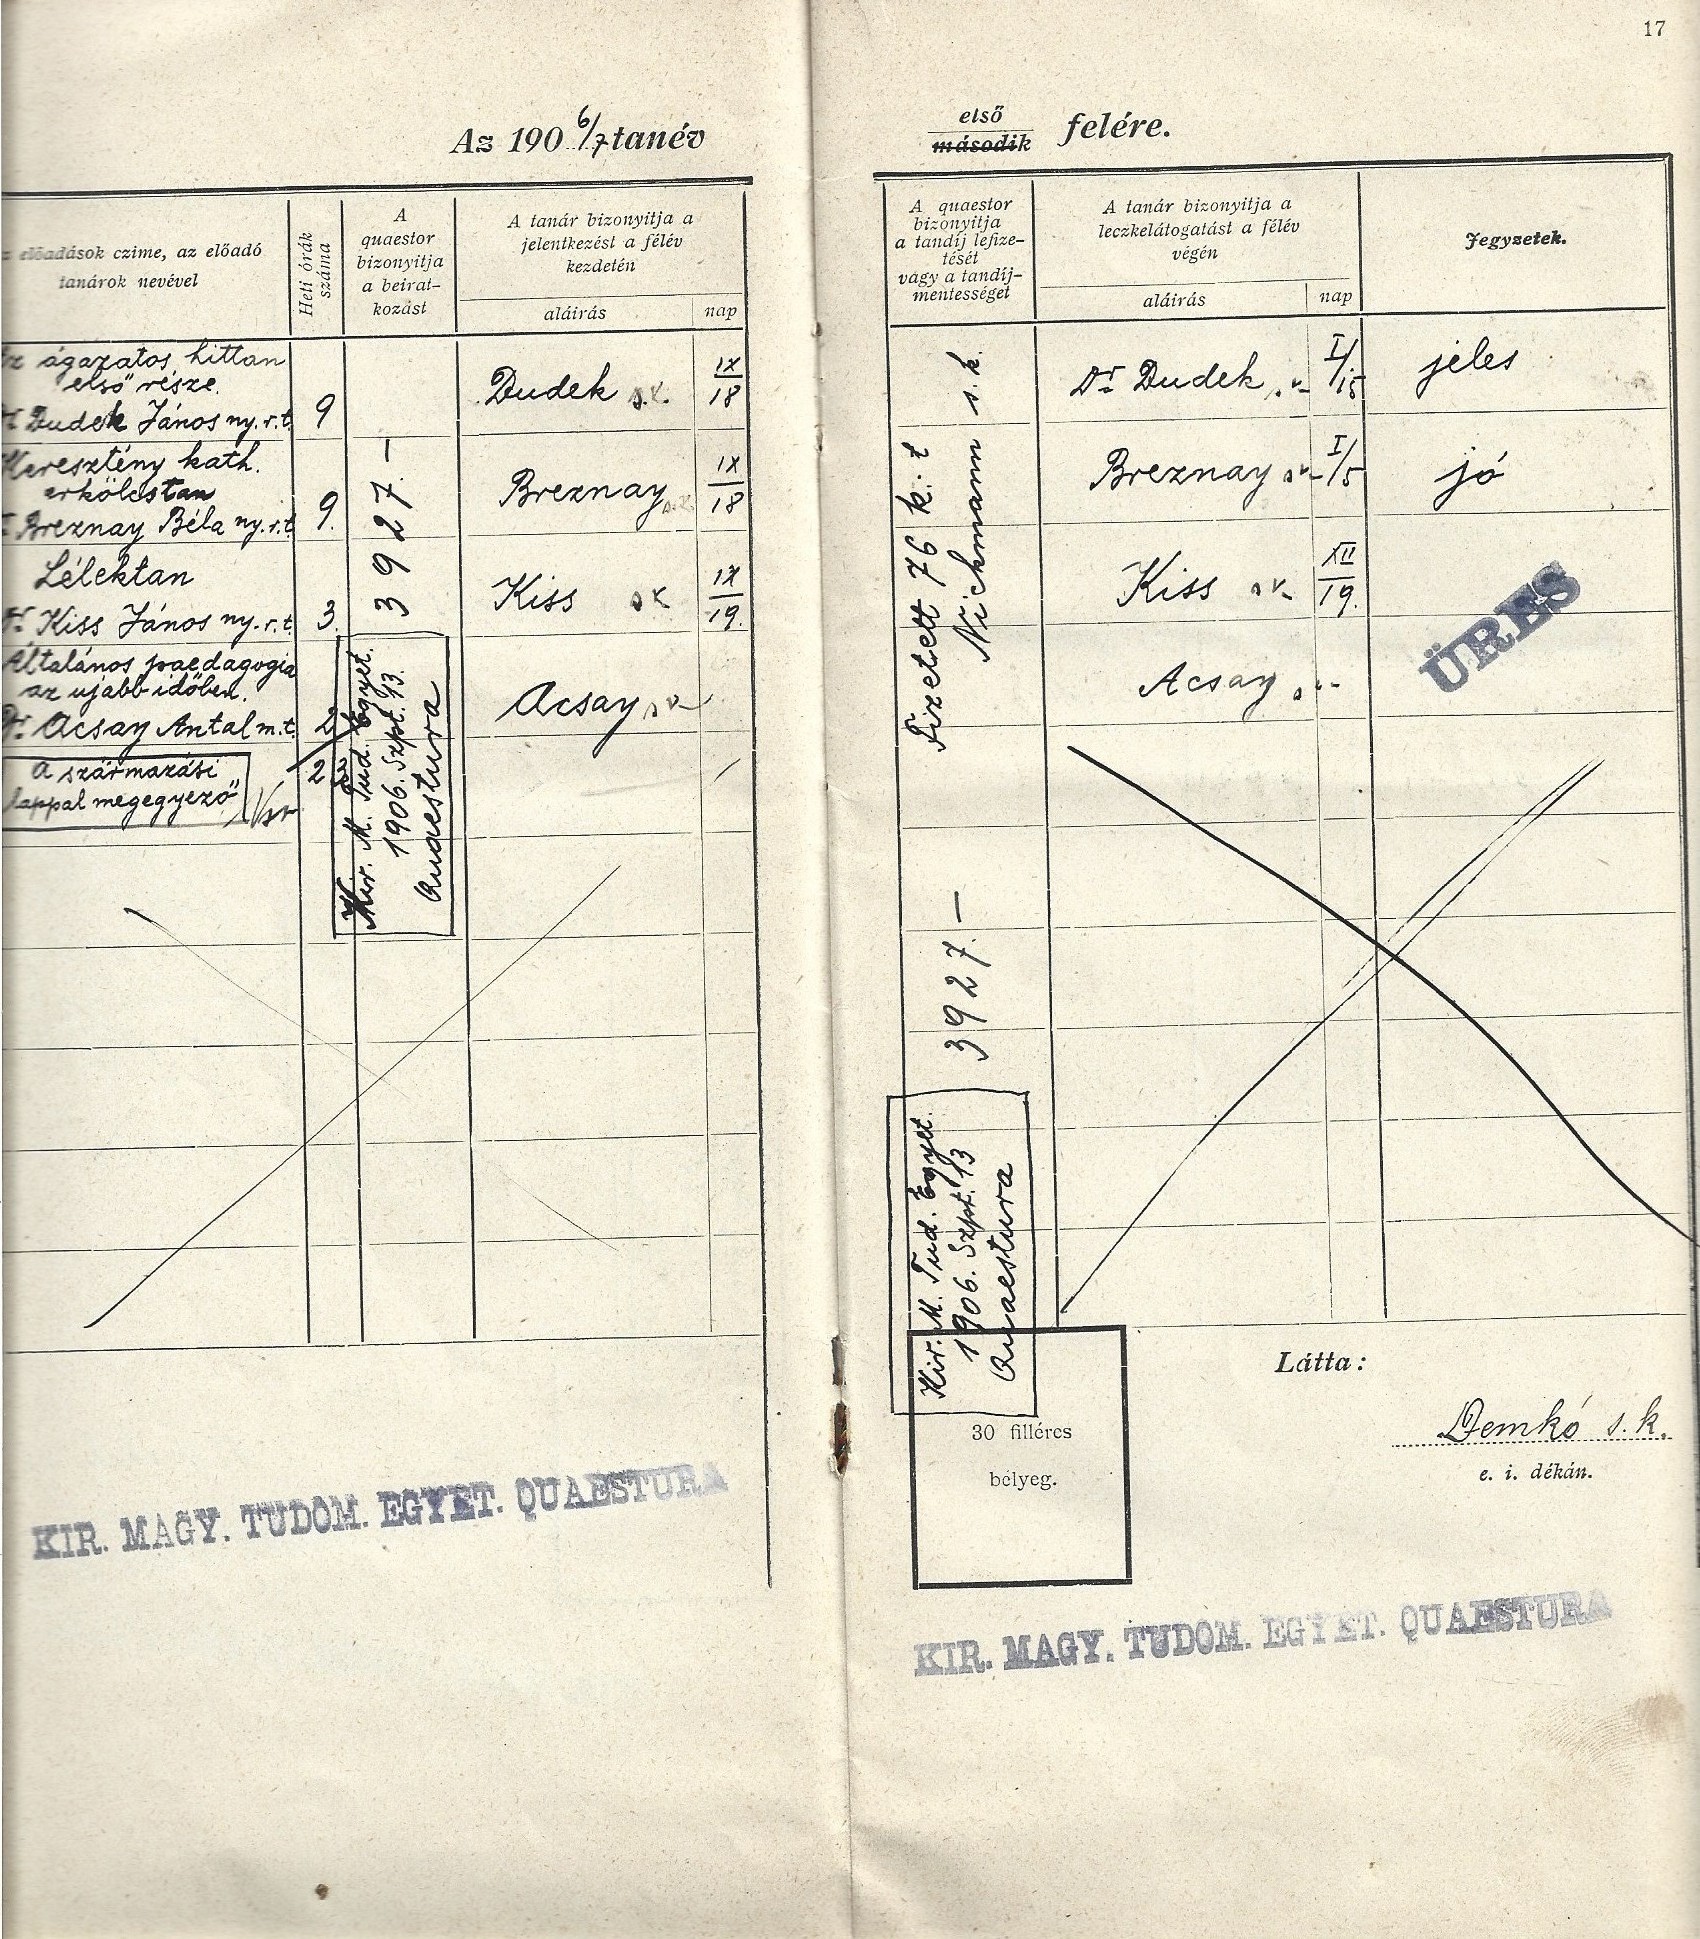 17
Az 190 6/7 tanév
első
második felére.
előadások czime, az előadó
tanárok nevével
Heti órák
száma
A
quaestor
bizonyitja
a beirat-
kozást
A tanár bizonyitja a
jelentkezést a félév
kezdetén
aláirás
nap
A quaestor
bizonyitja
a tandíj lefize-
tését
vagy a tandíj-
mentességet
A tanár bizonyitja a
leczkelátogatást a félév
végén
aláirás
nap
Jegyzetek.
ágazatos hittan
első része.
Dr Dudek János ny. r. t.
9
Dudek s.k.
IX/18
Dr Dudek s.k.
I/15
jeles
Keresztény kath.
erkölcstan
Breznay Béla ny. r. t.
9.
Breznay s.k.
IX/18
Breznay sk
I/15
jó
Lélektan
Dr Kiss János ny. r. t.
3.
Kiss sk
IX/19.
Kiss sk
XII/19.
Általános paedagogia
az ujabb időben.
Dr Acsay Antal m. t.
2
Acsay sk
Acsay sk
ÜRES
A származási
lappal megegyező
23
3927.—
Kir. M. Tud. Egyet.
1906. Szpt. 13.
Quaestura
Fizetett 76 k. t
Nickmann s. k.
3927.—
Kir. M. Tud. Egyet.
1906. Szpt. 13
Quaestura
30 filléres
bélyeg.
Látta:
Demkó s. k.
e. i. dékán.
KIR. MAGY. TUDOM. EGYET. QUAESTURA
KIR. MAGY. TUDOM. EGYET. QUAESTURA